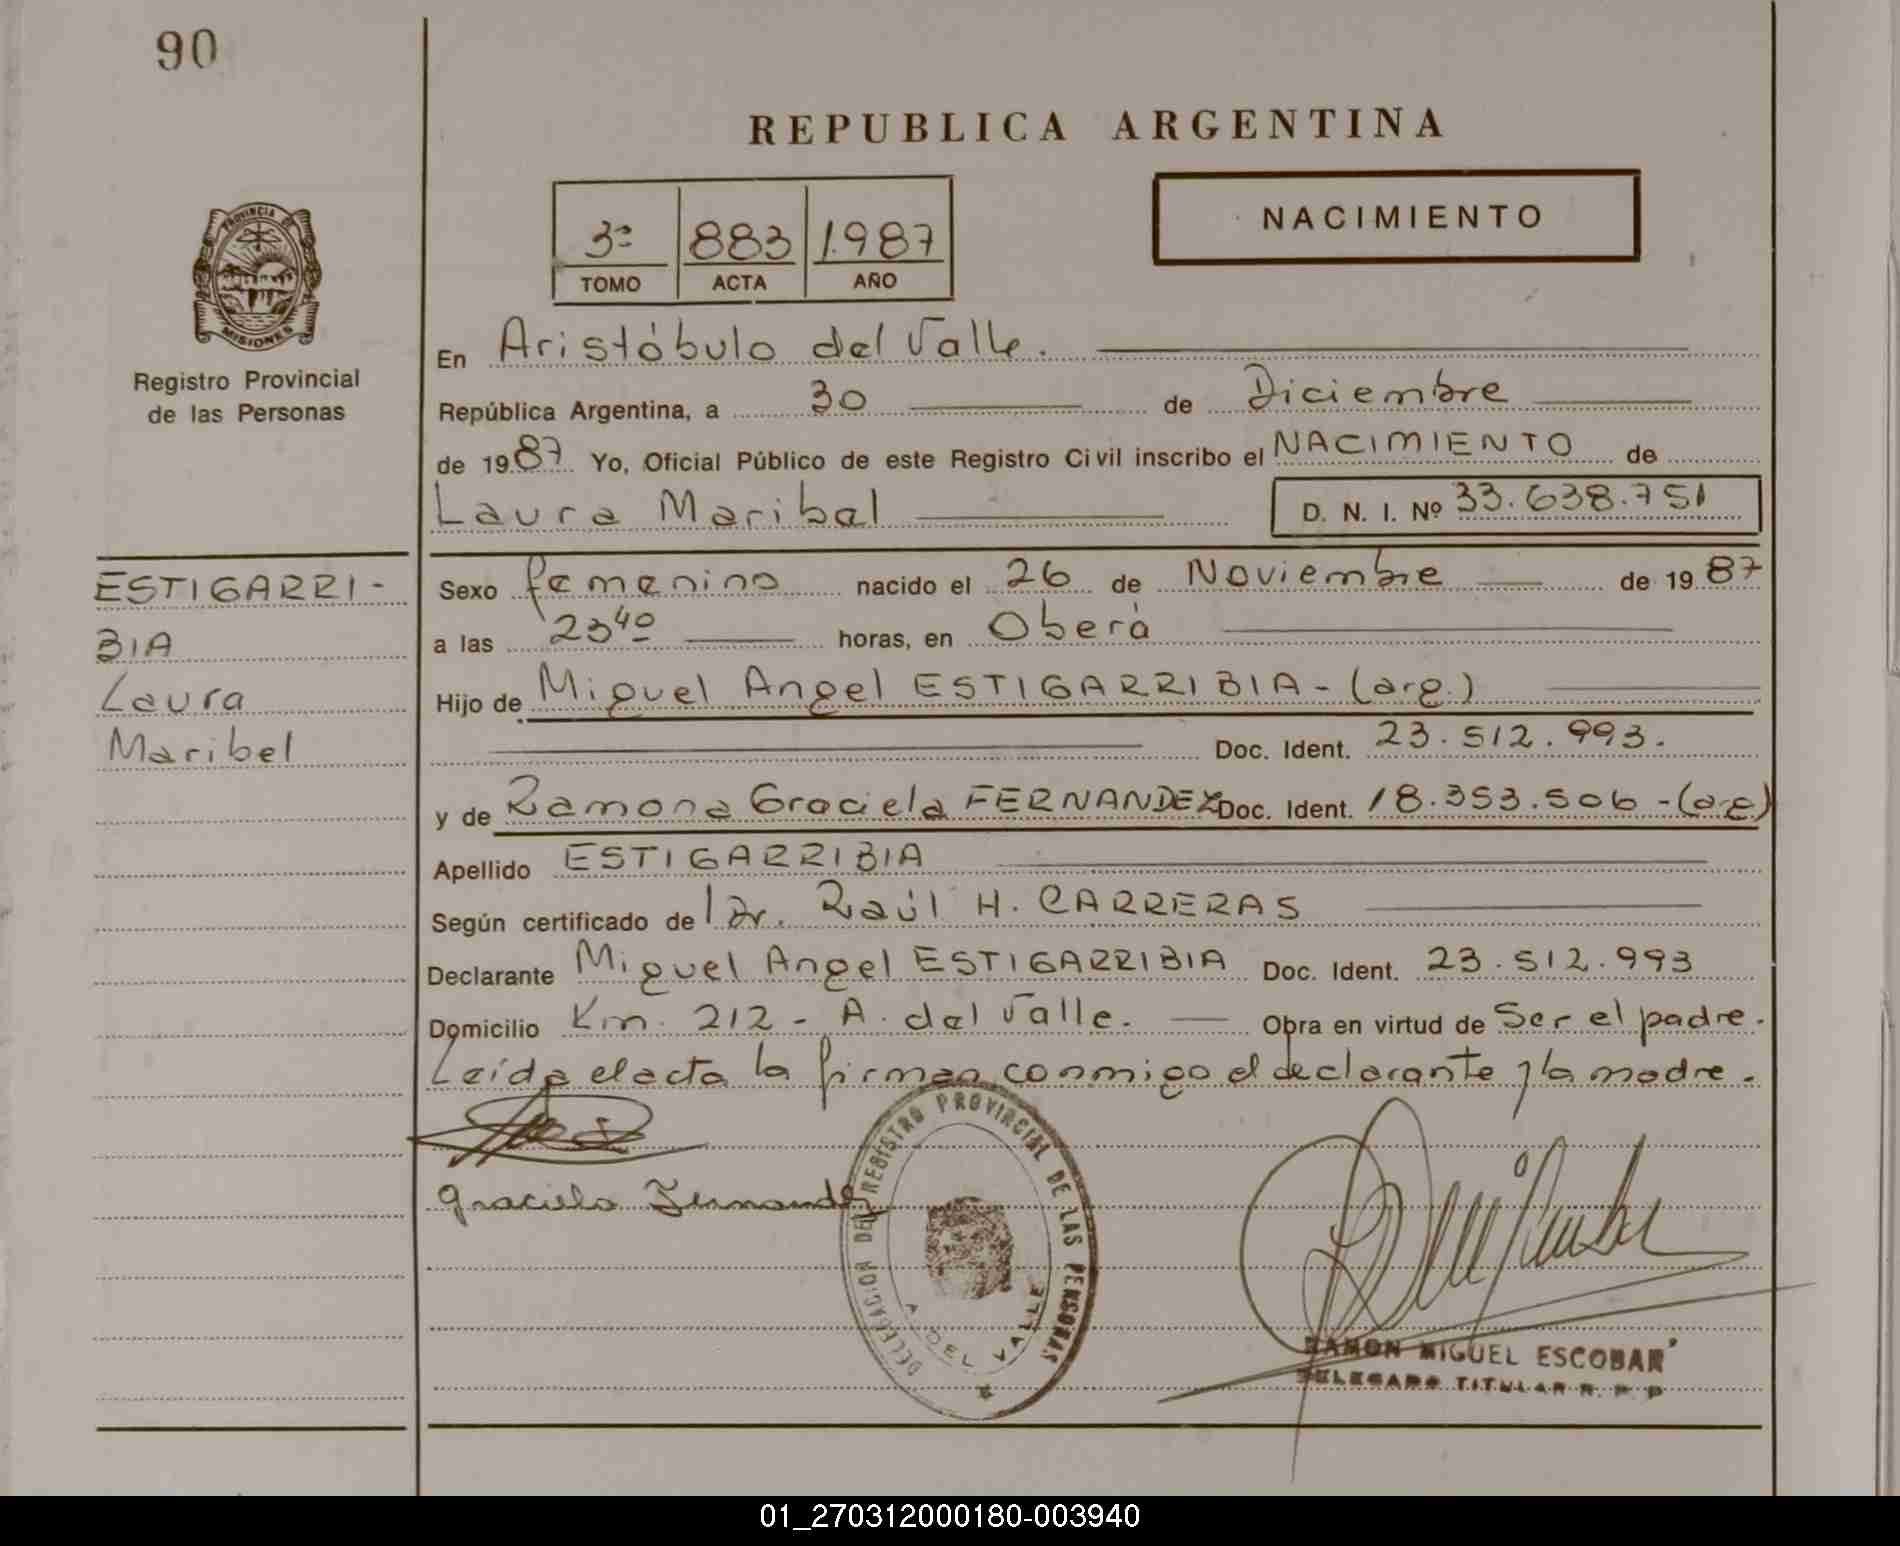 90
REPUBLICA ARGENTINA
PROVINCIA DE
MISIONES
Registro Provincial
de las Personas
3º 883 1.987
TOMO ACTA AÑO
NACIMIENTO
En Aristóbulo del Valle.
República Argentina, a 30 de Diciembre
de 1987 Yo, Oficial Público de este Registro Civil inscribo el NACIMIENTO de
Laura Maribel D. N. I. Nº 33.638.751
ESTIGARRI-
BIA
Laura
Maribel
Sexo femenino nacido el 26 de Noviembre de 1987
a las 23⁴⁰ horas, en Oberá
Hijo de Miguel Angel ESTIGARRIBIA - (arg.)
Doc. Ident. 23.512.993.
y de Ramona Graciela FERNANDEZ Doc. Ident. 18.353.506 - (arg)
Apellido ESTIGARRIBIA
Según certificado de Dr. Raúl H. CARRERAS
Declarante Miguel Angel ESTIGARRIBIA Doc. Ident. 23.512.993
Domicilio Km. 212 - A. del Valle. Obra en virtud de Ser el padre.
Leída el acta la firman conmigo el declarante y la madre.
Graciela Fernandez
DELEGACION DEL REGISTRO PROVINCIAL DE LAS PERSONAS
A. DEL VALLE
RAMON MIGUEL ESCOBAR
DELEGADO TITULAR R. P. P
01_270312000180-003940